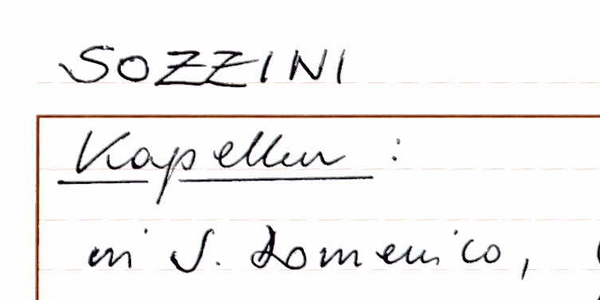 SOZZINI
Kapellen :
in S. Domenico,